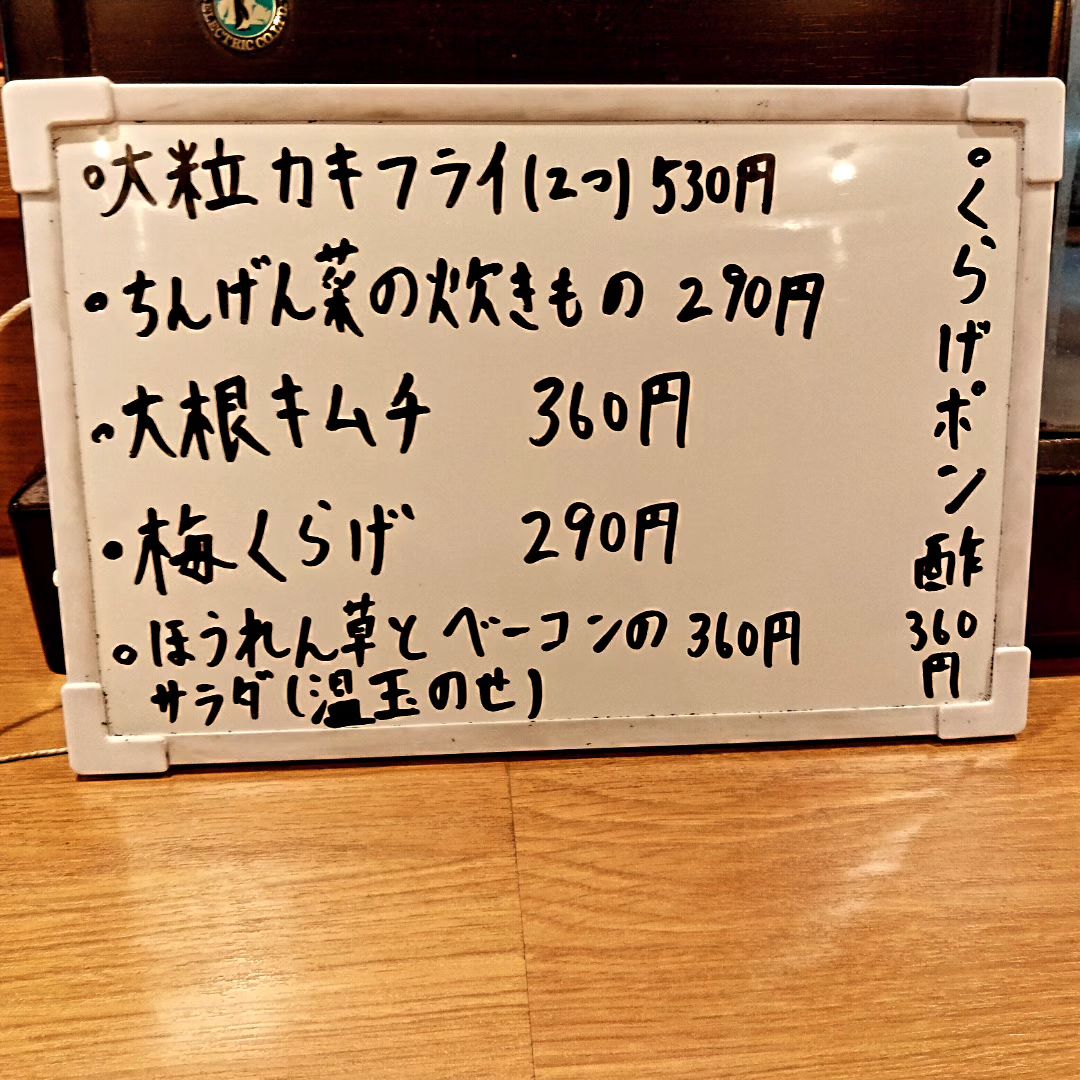 ELECTRIC CO.LTD.
大粒カキフライ(2つ) 530円
ちんげん菜の炊きもの 290円
大根キムチ 360円
梅くらげ 290円
ほうれん草とベーコンの 360円
サラダ(温玉のせ)
くらげポン酢360円